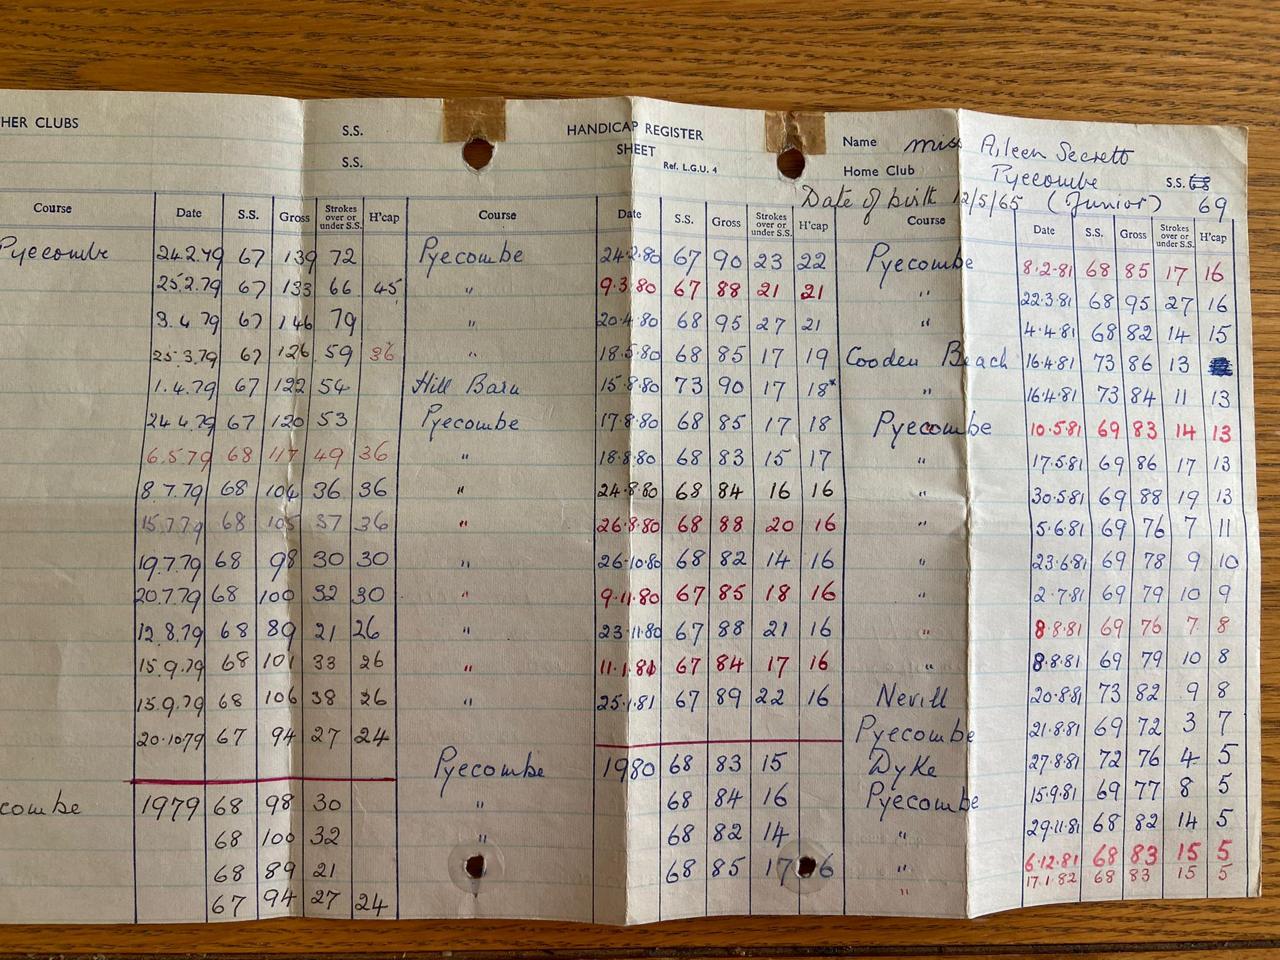 HER CLUBS S.S. HANDICAP REGISTER Name miss Aileen Secrett
S.S. SHEET Home Club Pyecombe S.S. 68 69
Ref. L.G.U. 4
Date of birth 12/5/65 (Junior)
Course Date S.S. Gross Strokes over or under S.S. H'cap Course Date S.S. Gross Strokes over or under S.S. H'cap Course Date S.S. Gross Strokes over or under S.S. H'cap
Pyecombe 24.2.79 67 139 72 Pyecombe 24.2.80 67 90 23 22 Pyecombe 8.2.81 68 85 17 16
25.2.79 67 133 66 45 " 9.3.80 67 88 21 21 " 22.3.81 68 95 27 16
3.4.79 67 146 79 " 20.4.80 68 95 27 21 " 4.4.81 68 82 14 15
25.3.79 67 126 59 36 " 18.5.80 68 85 17 19 Cooden Beach 16.4.81 73 86 13
1.4.79 67 122 54 Hill Barn 15.8.80 73 90 17 18* " 16.4.81 73 84 11 13
24.4.79 67 120 53 Pyecombe 17.8.80 68 85 17 18 Pyecombe 10.5.81 69 83 14 13
6.5.79 68 117 49 36 " 18.8.80 68 83 15 17 " 17.5.81 69 86 17 13
8.7.79 68 104 36 36 " 24.8.80 68 84 16 16 " 30.5.81 69 88 19 13
15.7.79 68 105 37 36 " 26.8.80 68 88 20 16 " 5.6.81 69 76 7 11
19.7.79 68 98 30 30 " 26.10.80 68 82 14 16 " 23.6.81 69 78 9 10
20.7.79 68 100 32 30 " 9.11.80 67 85 18 16 " 2.7.81 69 79 10 9
12.8.79 68 89 21 26 " 23.11.80 67 88 21 16 " 8.8.81 69 76 7 8
15.9.79 68 101 33 26 " 11.1.81 67 84 17 16 " 8.8.81 69 79 10 8
15.9.79 68 106 38 26 " 25.1.81 67 89 22 16 Nevill 20.8.81 73 82 9 8
20.10.79 67 94 27 24 Pyecombe 21.8.81 69 72 3 7
Pyecombe 1980 68 83 15 Dyke 27.8.81 72 76 4 5
combe 1979 68 98 30 " 68 84 16 Pyecombe 15.9.81 69 77 8 5
68 100 32 " 68 82 14 " 29.11.81 68 82 14 5
68 89 21 " 68 85 17 6 " 6.12.81 68 83 15 5
67 94 27 24 " 17.1.82 68 83 15 5